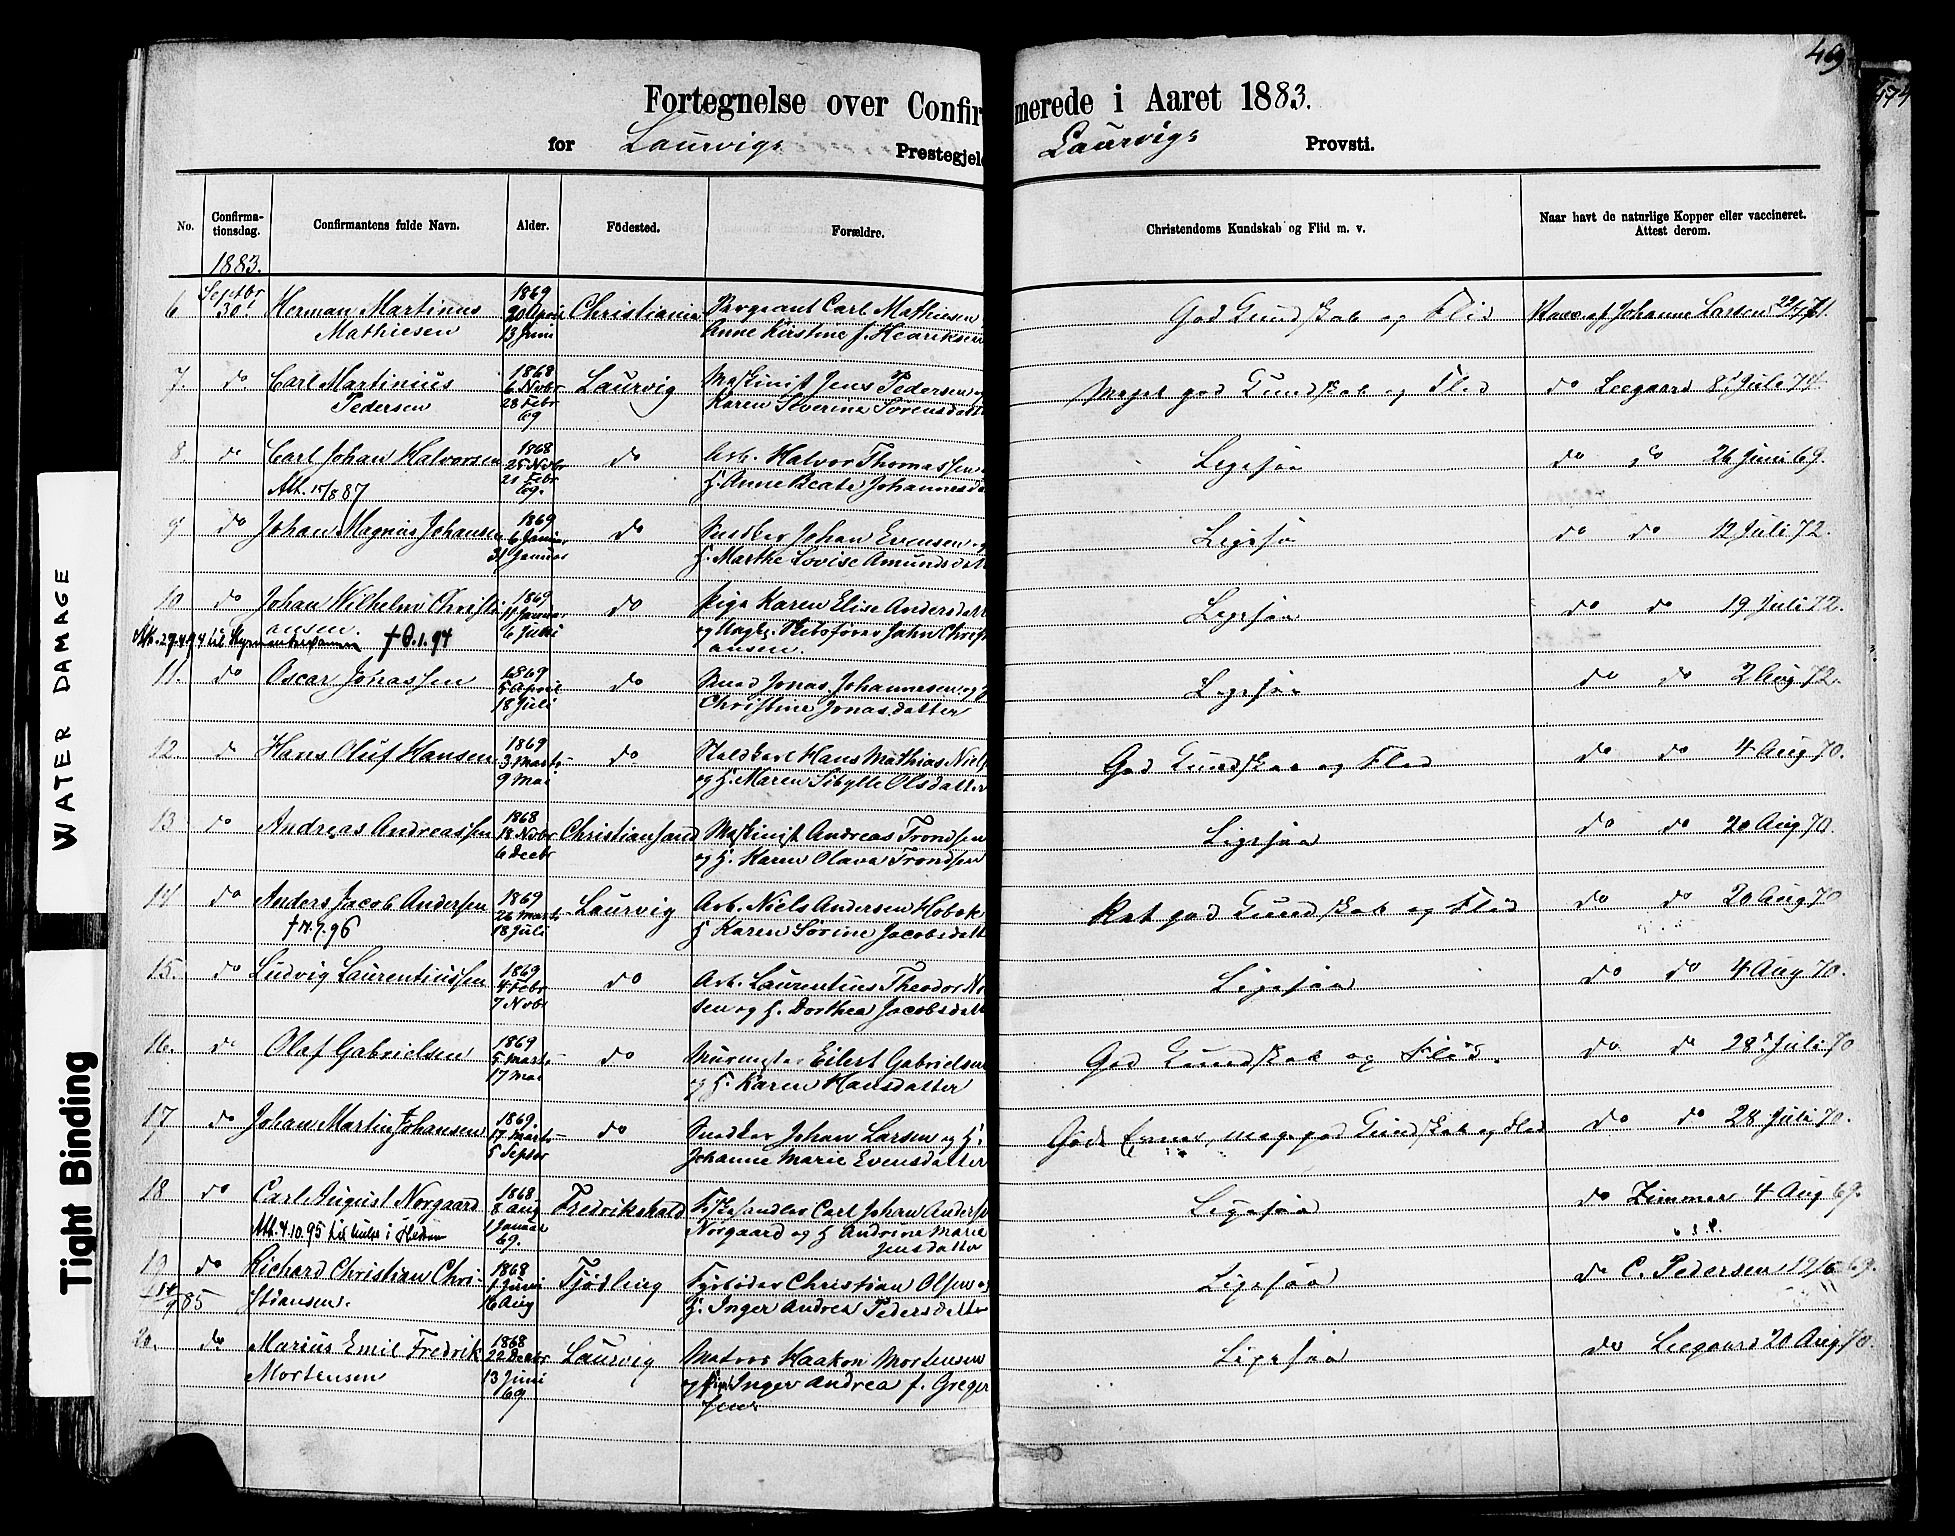 49
474
Fortegnelse over Confirmerede i Aaret 1883.
for Laurvigs Prestegjeld Laurvigs Provsti.
No. Confirmationsdag. Confirmantens fulde Navn. Alder. Födested. Forældre. Christendoms Kundskab og Flid m. v. Naar havt de naturlige Kopper eller vaccineret. Attest derom.
1883.
6 Septbr 30 Herman Martinus 1869 20 April Christiania Sergeant Carl Mathiesen God Kundskab og Flid Vacc. af Johanne Larsen 22/7 71.
Mathiesen 13 Juni Anne Kirstine f. Henriksen
7. do Carl Martinius 1868 6 Novbr Laurvig Maskinist Jens Pedersen Meget god Kundskab og Flid do Leegaard 8 Juli 74.
Pedersen 28 Febr 69 Karen Severine Sörensdatt
8. do Carl Johan Halvorsen 1868 25 Novbr do Arb. Halvor Thomassen Ligesaa do do 26 Juni 69.
Att. 15/8 87 21 Febr 69. H. Anne Beate Johannesda
9 do Johan Magnus Johansen 1869 6 Januar do Snedker Johan Evensen og Ligesaa do do 12 Juli 72.
31 Januar H. Marthe Lovise Amundsdatt
10 do Johan Wilhelm Christi 1869 11 Januar do Pige Karen Elise Andersdatt Ligesaa do do 19 Juli 72.
ansen. 6 Juni og Ungk. Skibsförer John Christ
Att. 29.4.94 til Styrmandsexamen † 8.1.94 ansen.
11. do Oscar Jonassen 1869 5 April do Smed Jonas Johannesen og H Ligesaa do do 2 Aug 72.
18 Juli Christine Jonasdatter
12. do Hans Oluf Hansen 1869 3 Marts do Staldkarl Hans Mathias Niels God Kundskab og Flid do do 4 Aug 70.
9 Mai og H. Maren Sibylle Olsdatter
13 do Andreas Andreassen 1868 18 Novbr Christianssand Maskinist Andreas Trondsen Ligesaa do do 20 Aug 70.
6 Decbr og H. Karen Olava Trondsen
14 do Anders Jacob Andersen 1869 26 Marts Laurvig Arb. Niels Andersen Hobæk Ret god Kundskab og Flid do do 20 Aug 70
† 14.7.96 18 Juli H Karen Sorine Jacobsdatt
15. do Ludvig Laurentiussen 1869 4 Febr do Arb. Laurentius Theodor Ni Ligesaa do do 4 Aug 70.
7 Novbr sen og H. Dorthea Jacobsdatt
16. do Olaf Gabrielsen 1869 5 Marts do Murmester Eilert Gabrielsen God Kundskab og Flid. do do 28 Juli 70
17 Mai og H. Karen Hansdatter
17 do Johan Martin Johansen 1869. 17 Marts do Snedker Johan Larsen og H. Gode Evner, meget god Kundskab og Flid do do 28 Juli 70.
5 Septbr Johanne Marie Evensdatter
18 do Carl August Norgaard 1868 8 Aug Fredrikshald Fiskehandler Carl Johan Anders Ligesaa do Zimmer 4 Aug 69.
Att. 4.10.95 til 1 Januar 69. Norgaard og H Andrine Marie
Jensdatter
19 do Richard Christian Chri- 1868 1 Juni Tjödling Fyrböder Christian Olsen og Ligesaa do C. Pedersen 19/6 69.
† 14/9 85 stiansen. 16 Aug H. Inger Andrea Pedersdatter
20. do Marius Emil Fredrik 1868 22 Decbr Laurvig Matros Haakon Mortensen Ligesaa do Leegaard 20 Aug 70.
Mortensen 13 Juni 69 og Inger Andrea f. Greger
sen
WATER DAMAGE
Tight Binding